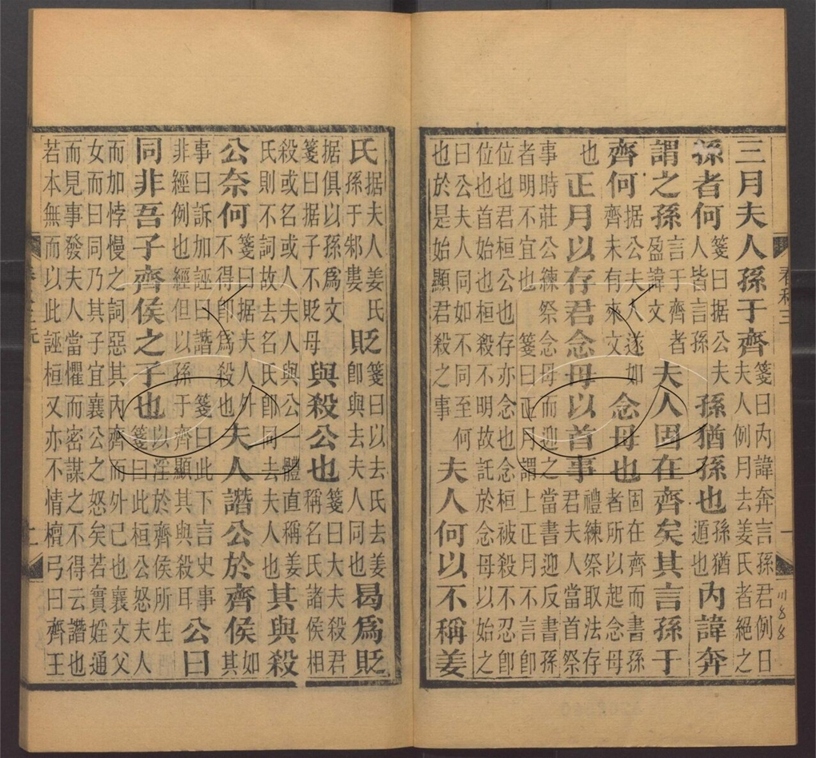 三月夫人孫于齊箋曰内諱奔言孫君例日夫人例月去姜氏者絕之
孫者何箋曰據公夫人皆言孫孫猶孫也孫猶遁也内諱奔
謂之孫言于齊者盈諱文夫人固在齊矣其言孫于
齊何據公夫人遂如齊未有來文念母也固在齊而書孫者所以起念母
也正月以存君念母以首事禮練祭取法存君夫人當首祭
事時莊公練祭念母而迎之當書迎反書孫者明不宜也箋曰正月謂上正月不言卽
位也君桓公也存亦念也念桓被殺不忍卽位也首始也桓殺不明故託於念母以始之
曰公夫人同如不同至何也於是始顯君殺之事夫人何以不稱姜
春秋三
一
氏據夫人姜氏孫于邾婁貶箋曰以去氏去姜卽與去夫人同也曷爲貶
據俱以孫爲文箋曰據子不貶母與殺公也箋曰大夫殺君稱名氏諸侯相
殺或名或人夫人與公一體直稱姜氏則不詞故去名氏卽同去夫人也其與殺
公奈何箋曰據夫人外不得卽爲殺也夫人譖公於齊侯如其
事曰訴加誣曰譖箋曰此下言史事非經例也經但以孫于齊顯其與殺耳公曰
同非吾子齊侯之子也以淫於齊侯所生箋曰此桓公怒夫人
而加悖慢之詞惡其内齊而外己也襄文父女而曰同乃其子宜襄公之怒矣若實婬通
而見事發夫人當懼而密謀之不得云譖也若本無而以此誣桓又亦不情檀弓曰齊王